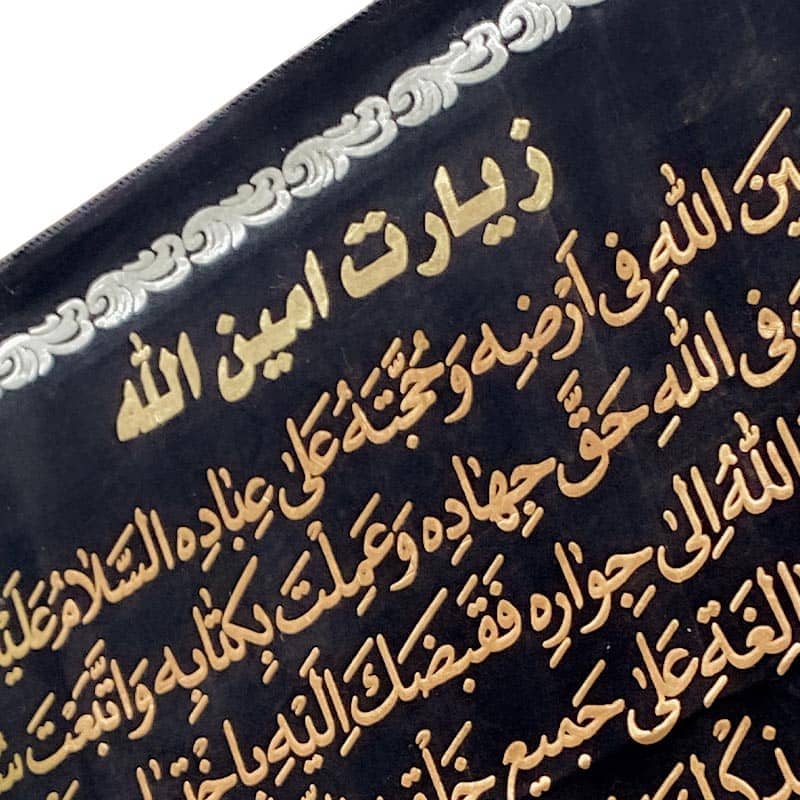 زیارت امین الله
اللهِ فی اَرْضِهِ وَحُجَّتَهُ عَلیٰ عِبٰادِهِ السَّلامُ
وَفی اللهِ حَقَّ جِهٰادِهِ وَعَمِلْتَ بِكِتٰابِهِ وَاتَّبَعْتَ
اللهُ اِلیٰ جِوٰارِهِ فَقَبَضَكَ اِلَیْهِ
عَلیٰ جَمیعِ